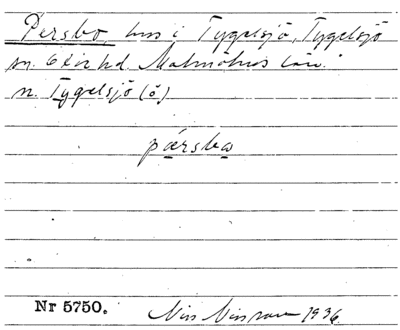 Persbo hus i Tygelsjö, Tygelsjö
sn. Oxie hd. Malmöhus län.
n. Tygelsjö (ö)
pærsba
Nr 5750.
Nils Nilsson 1936